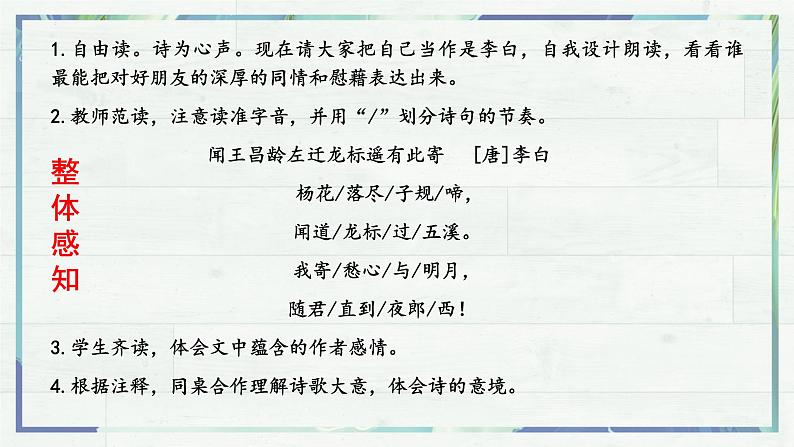 1.自由读。诗为心声。现在请大家把自己当作是李白，自我设计朗读，看看谁
最能把对好朋友的深厚的同情和慰藉表达出来。
2.教师范读，注意读准字音，并用“/”划分诗句的节奏。
整体感知
闻王昌龄左迁龙标遥有此寄 [唐]李白
杨花/落尽/子规/啼，
闻道/龙标/过/五溪。
我寄/愁心/与/明月，
随君/直到/夜郎/西！
3.学生齐读，体会文中蕴含的作者感情。
4.根据注释，同桌合作理解诗歌大意，体会诗的意境。